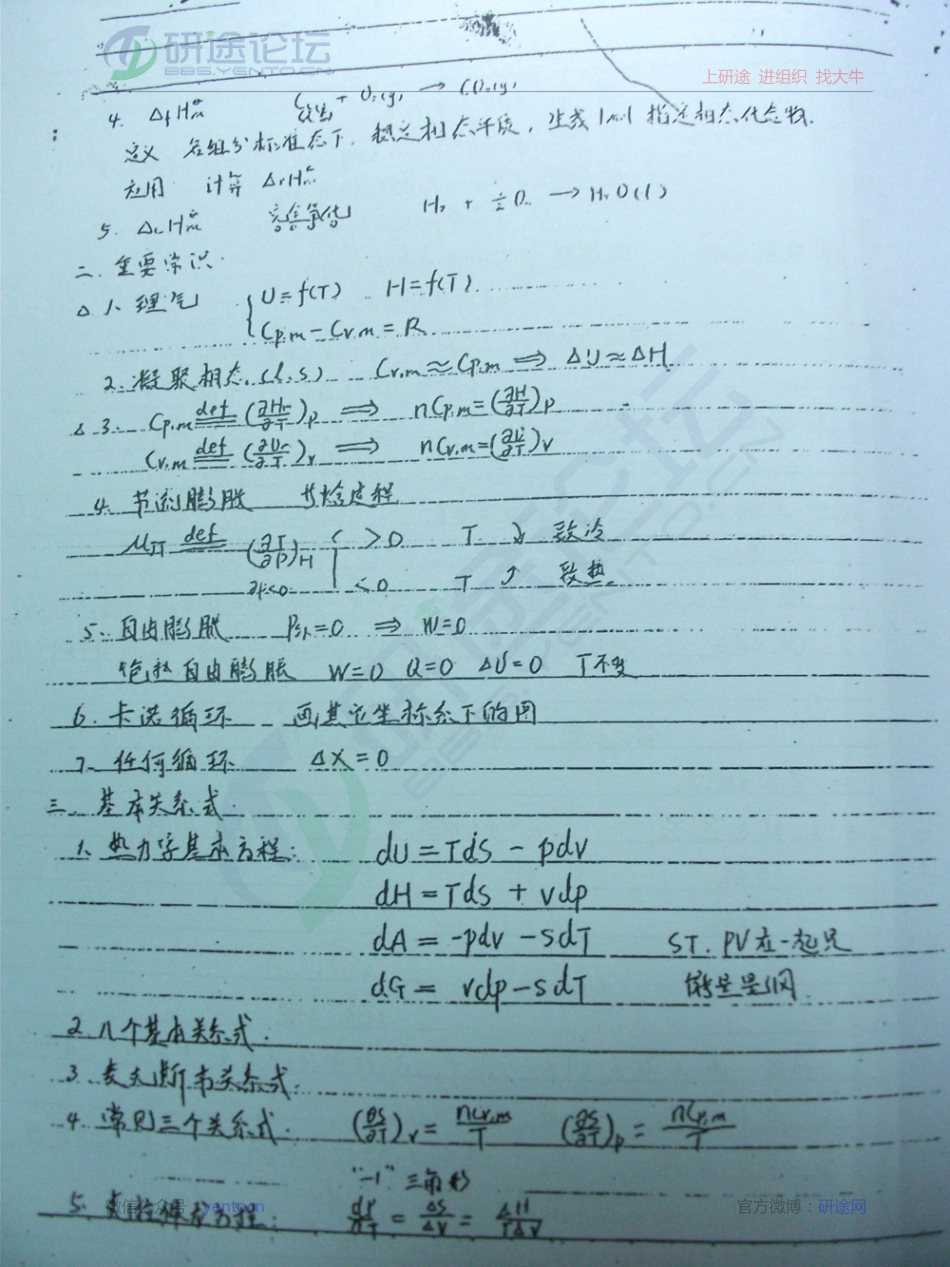 研途论坛
BBS.YENTO.CN
上研途 进组织 找大牛
4. ΔfHm^θ C(石墨) + O₂(g) → CO₂(g)
定义 各组分标准态下, 稳定相态单质, 生成 1mol 指定相态化合物.
应用 计算 ΔrHm^θ
5. ΔcHm^θ 完全氧化 H₂ + ½O₂ → H₂O(l)
二. 重要常识.
Δ 1. 理气 { U=f(T) H=f(T)
Cp,m − Cv,m = R
2. 凝聚相态.(l.s) Cv,m ≈ Cp,m ⟹ ΔU≈ΔH
Δ 3. Cp,m def (∂Hm/∂T)p ⟹ nCp,m=(∂H/∂T)p
Cv,m def (∂Um/∂T)v ⟹ nCv,m=(∂U/∂T)v
4. 节流膨胀 等焓过程
μJT def (∂T/∂p)H { >0 T ↓ 致冷
∂p<0 <0 T ↑ 致热
5. 自由膨胀 P外=0 ⟹ W=0
绝热自由膨胀 W=0 Q=0 ΔU=0 T不变
6. 卡诺循环 画其它坐标系下的图
7. 任何循环 ΔX=0
三. 基本关系式.
1. 热力学基本方程: dU=Tds − pdv
dH=Tds + vdp
dA = -pdv − sdT ST. PV在一起是
dG = vdp − sdT 能量量纲.
2. 几个基本关系式.
3. 麦克斯韦关系式.
4. 常见三个关系式. (∂S/∂T)v = nCv,m/T (∂S/∂T)p = nCp,m/T
"-1" 三角形
5. 克拉佩龙方程: dp/dT = ΔS/ΔV = ΔH/TΔV
微信公众号:yentocn 官方微博:研途网